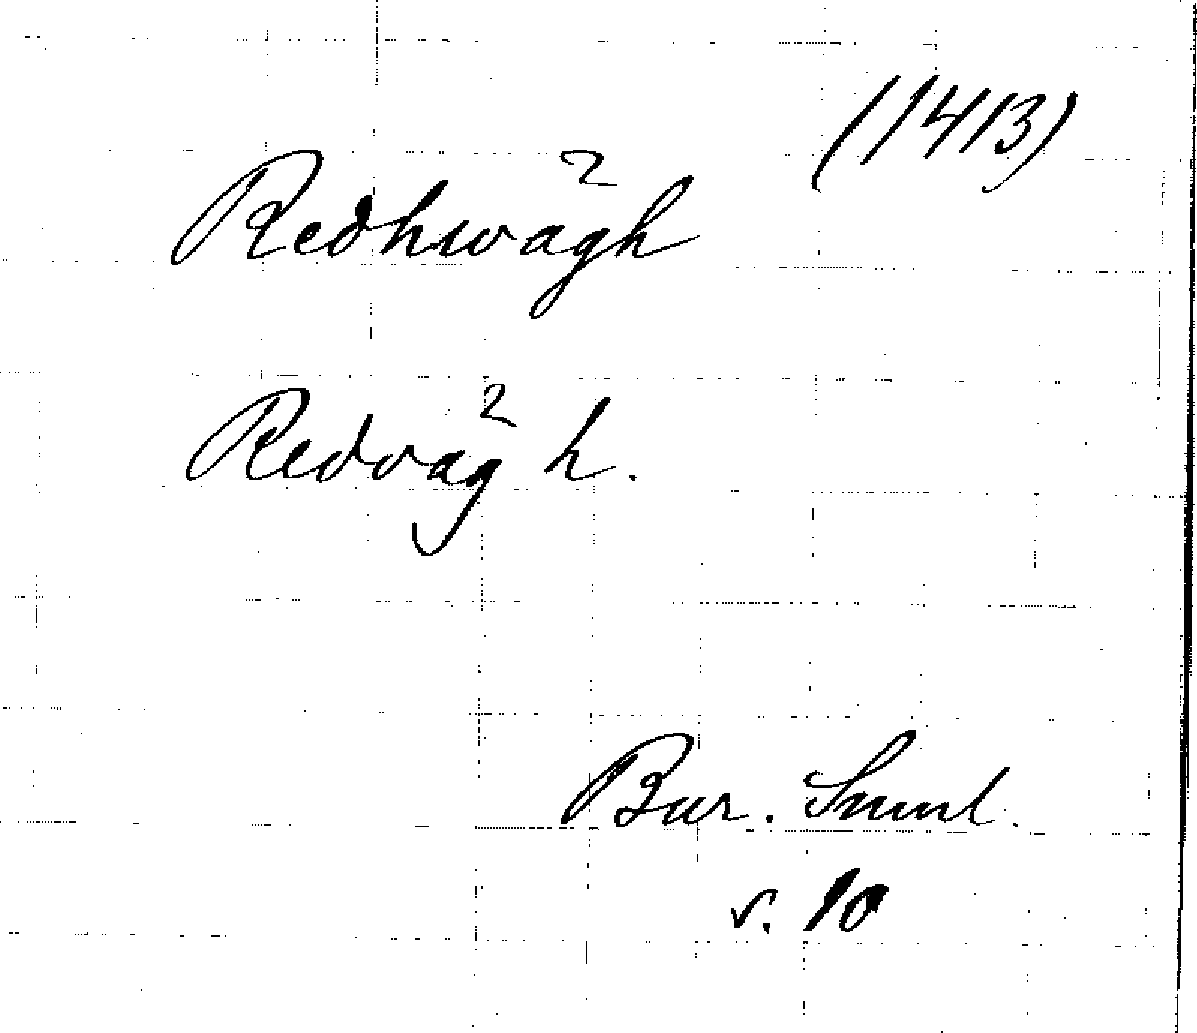 (1413)
Redhwägh
Redvägh.
Bur. Saml.
s. 10